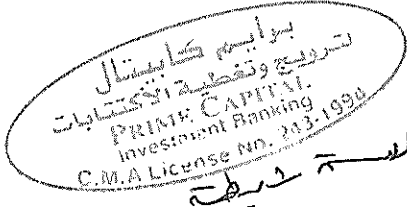 برايم كابيتال
ترويج وتغطية الاكتتابات
PRIME CAPITAL
Investment Banking
C.M.A License No. 243-1990